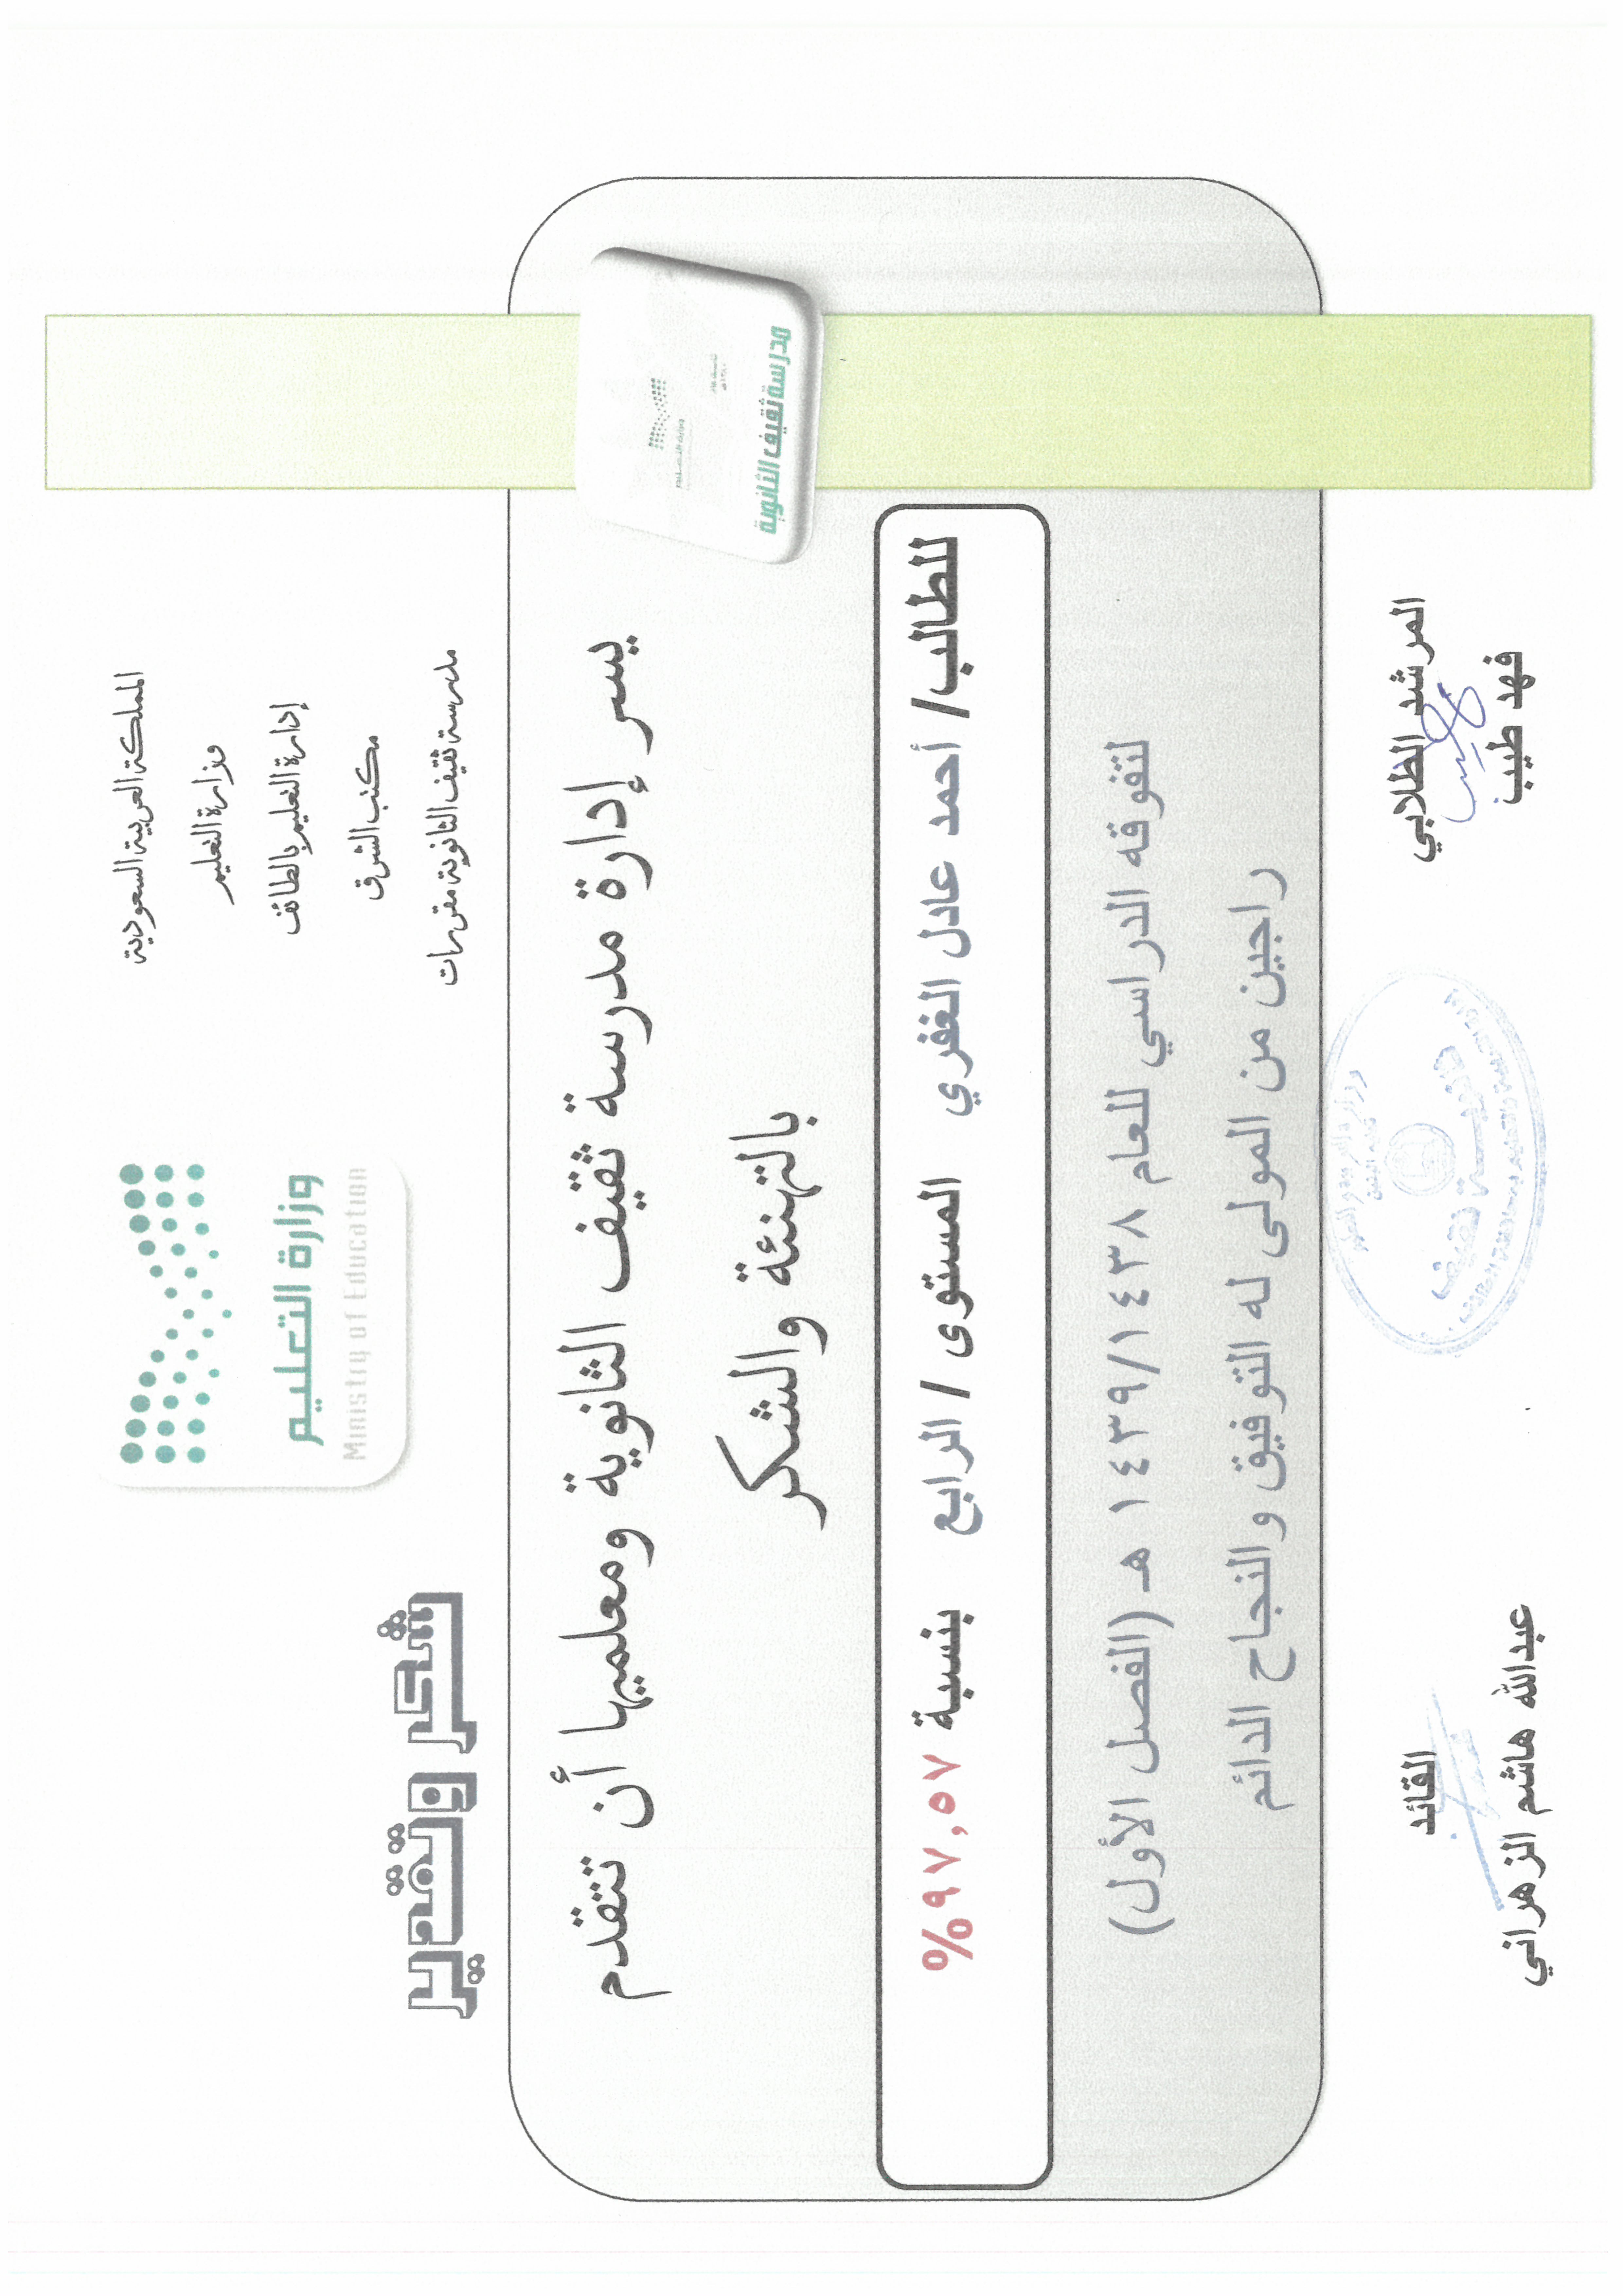 المملكة العربية السعودية
وزارة التعليم
إدارة التعليم بالطائف
مكتب الشرق
مدرسة ثقيف الثانوية مقررات
وزارة التعليم
Ministry of Education
شكر وتقدير
مدرسة ثقيف الثانوية
يسر إدارة مدرسة ثقيف الثانوية ومعلميها أن تتقدم
بالتهنئة والشكر
للطالب/ أحمد عادل الغفري المستوى / الرابع بنسبة ٩٧,٥٧%
لتفوقه الدراسي للعام ١٤٣٩/١٤٣٨ هـ (الفصل الأول)
راجين من المولى له التوفيق والنجاح الدائم
المرشد الطلابي
فهد طيب
القائد
عبدالله هاشم الزهراني